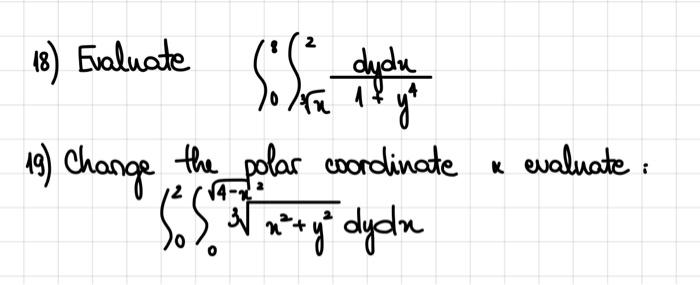 18) Evaluate ∫₀⁸ ∫_∛x² dydx / 1 + y⁴
19) Change the polar coordinate & evaluate :
∫₀² ∫₀^√4-x² ∛x² + y² dydx